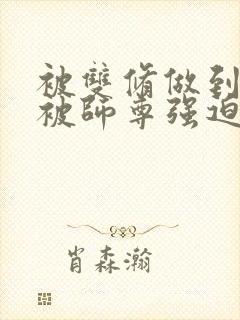 被雙脩做到
被師尊强迫
肖森瀚